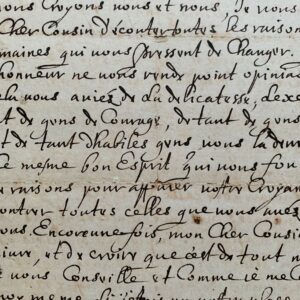 nous Croyons nous et nous De nous
Cher Cousin d'écouter toutes les raisons
maines qui vous pressent de Changer.
honneur ne vous rende point opinia
ela vous aviés de du delicatesse, de
t de gens de Courage, de tant de gens
t de tant dhabiles gens vous la
Ce meme bon Esprit qui vous fou
raisons pour apuier votre Croyan
contrer toutes celles que vous aués
ous. Encore une fois, mon Cher Cousi
et de croire que c'est de tout
vous Conseille et Comme je me
meme